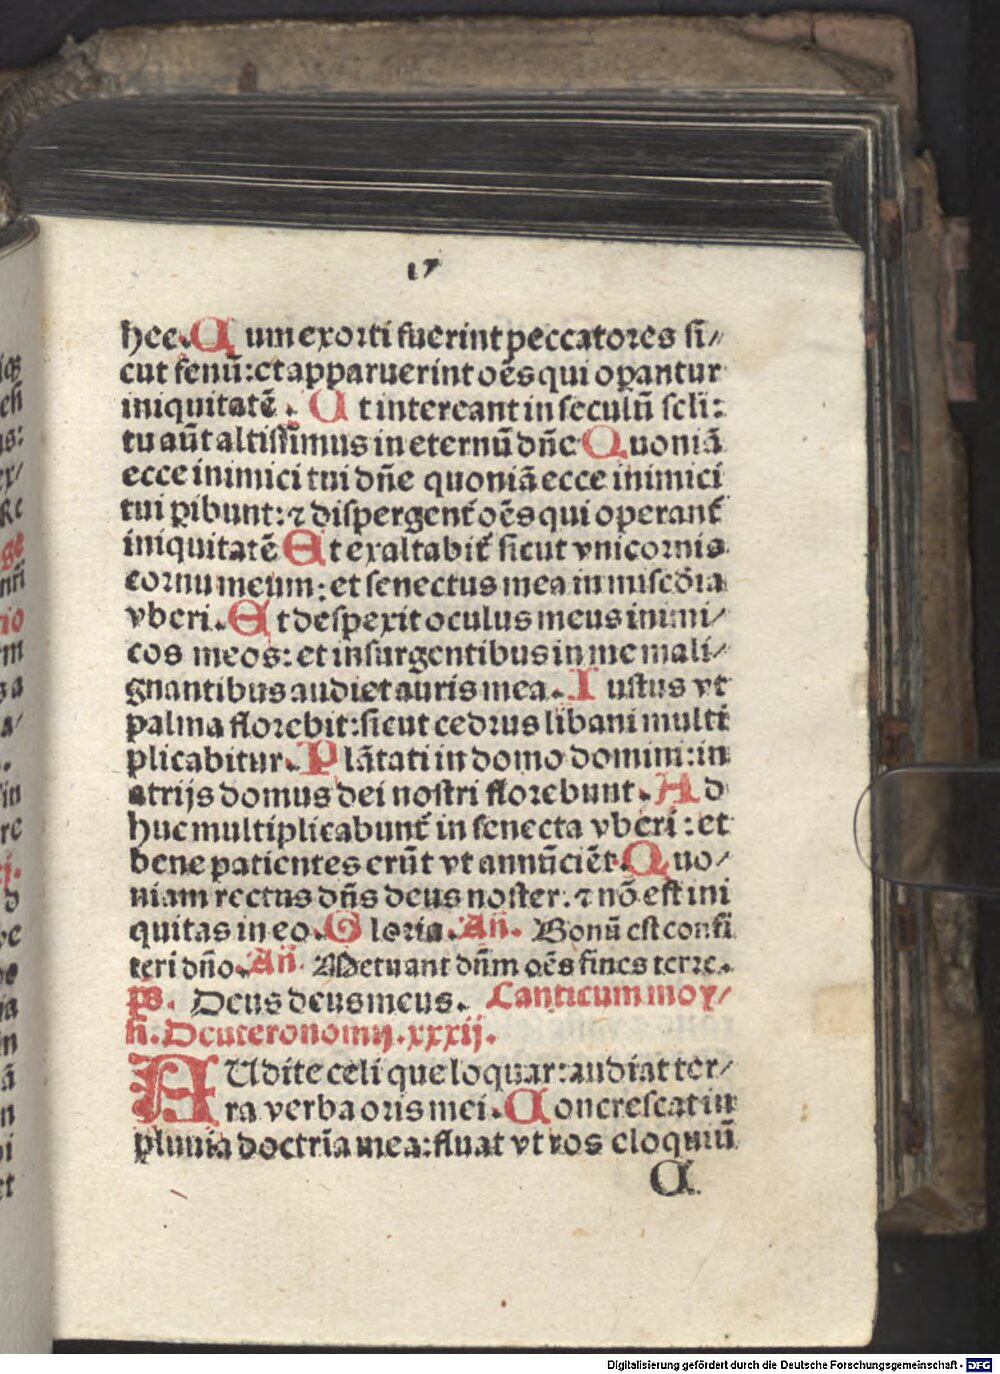 17
hec. Cum exorti fuerint peccatores si⸗
cut fenū: et apparuerint oēs qui oꝑantur
iniquitatē. Ut intereant in seculū scli:
tu aūt altissimus in eternū dn̄e Quoniā
ecce inimici tui dn̄e quoniā ecce inimici
tui ꝑibunt: ⁊ dispergent̄ oēs qui operant̄
iniquitatē Et exaltabit̄ sicut vnicornis
cornu meum: et senectus mea in misc̄dia
vberi. Et despexit oculus meus inimi⸗
cos meos: et insurgentibus in me mali⸗
gnantibus audiet auris mea. Iustus vt
palma florebit: sicut cedrus libani multi
plicabitur. Plātati in domo domini: in
atrijs domus dei nostri florebunt. Ad
huc multiplicabunt̄ in senecta vberi: et
bene patientes erūt vt annūciēt. Quo⸗
niam rectus dn̄s deus noster: ⁊ nō est ini
quitas in eo. Gloria. An̄. Bonū est confi
teri dn̄o. An̄. Metuant dn̄m oēs fines terre.
ps. Deus deus meus. Canticum moy⸗
si. Deuteronomij. xxxij.
AUdite celi que loquar: audiat ter⸗
ra verba oris mei. Concrescat in
pluuia doctrīa mea: fluat vt ros eloquiū
Digitalisierung gefördert durch die Deutsche Forschungsgemeinschaft - DFG